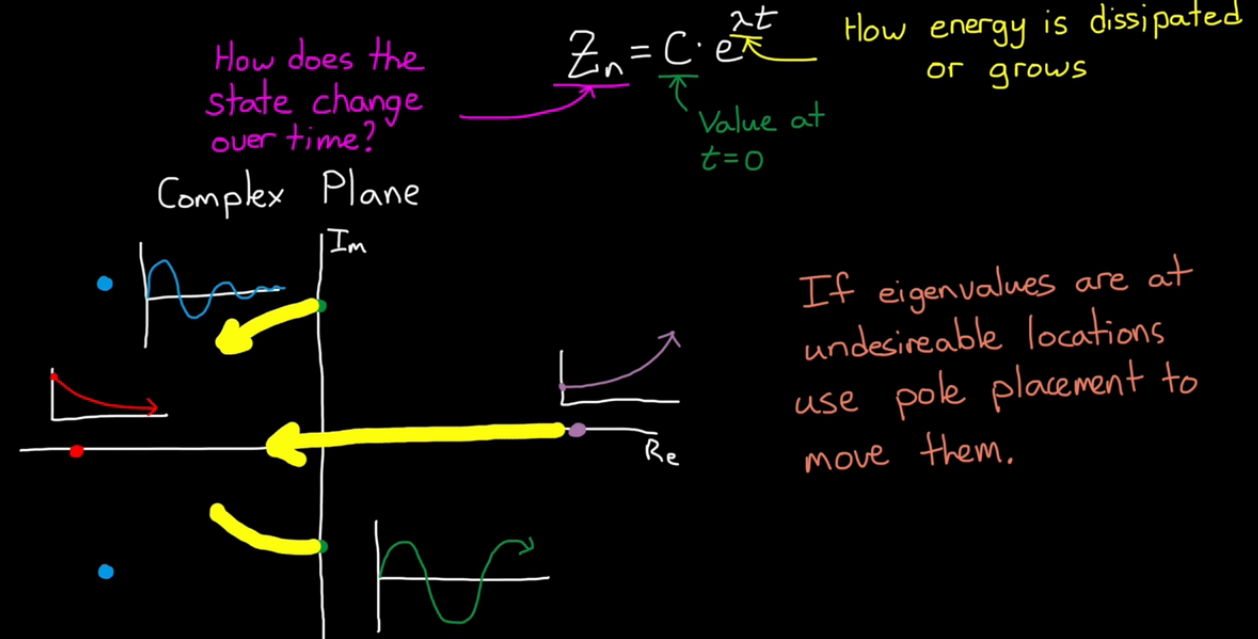 How does the
state change
over time?
Zₙ = C · e^λt
Value at
t=0
How energy is dissipated
or grows
Complex Plane
Im
Re
If eigenvalues are at
undesireable locations
use pole placement to
move them.